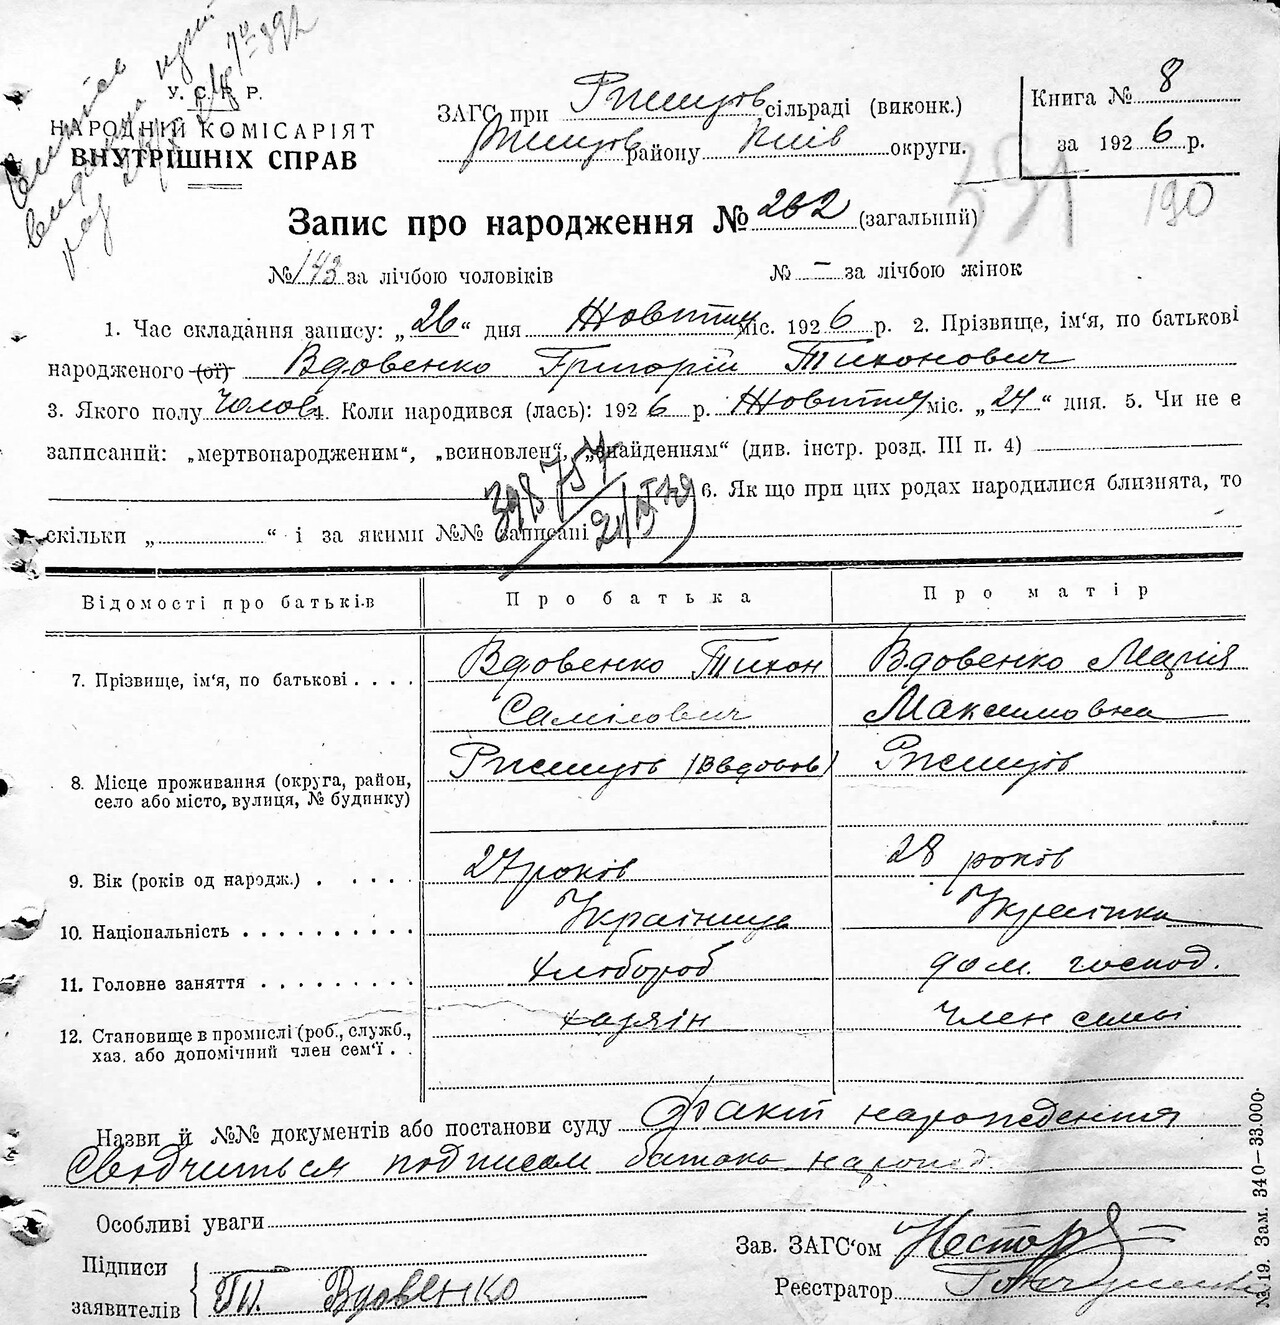 У. С. Р. Р.
НАРОДНІЙ КОМІСАРІЯТ
ВНУТРІШНІХ СПРАВ
ЗАГС при Ржищов сільраді (виконк.)
Ржищов району Київ округи.
Книга № 8
за 1926 р.
391
190
Запис про народження № 262 (загальний)
№ 143 за лічбою чоловіків № – за лічбою жінок
1. Час складання запису: „26“ дня Жовтня міс. 1926 р. 2. Прізвище, ім'я, по батькові
народженого (ої) Вдовенко Григорій Тихонович
3. Якого полу Чолов. 4. Коли народився (лась): 1926 р. Жовтня міс. „24“ дня. 5. Чи не є
записаний: „мертвонародженим“, „всиновлен“, „знайденням“ (див. інстр. розд. III п. 4)
6. Як що при цих родах народилися близнята, то
скільки „ “ і за якими №№ записані
Відомості про батьків Про батька Про матір
7. Прізвище, ім'я, по батькові . . . . Вдовенко Тихон Вдовенко Марія
Самілович Максимовна
8. Місце проживання (округа, район, Ржищов Ржищів
село або місто, вулиця, № будинку)
9. Вік (років од народж.) . . . . . 27 років 28 років
10. Національність . . . . . . . . . . Українець Українка
11. Головне заняття . . . . . . . . . Хлібороб дом. господ.
12. Становище в промислі (роб., служб., хазяїн член семьї
хаз. або допомічний член сем'ї . .
Назви й №№ документів або постанови суду Факт народження
Сведчиться подписом батька народж.
Особливі уваги
Зав. ЗАГС'ом Нестор
Підписи
заявителів Ти. Вдовенко
Реєстратор
№ 19. Зам. 340–33.000.